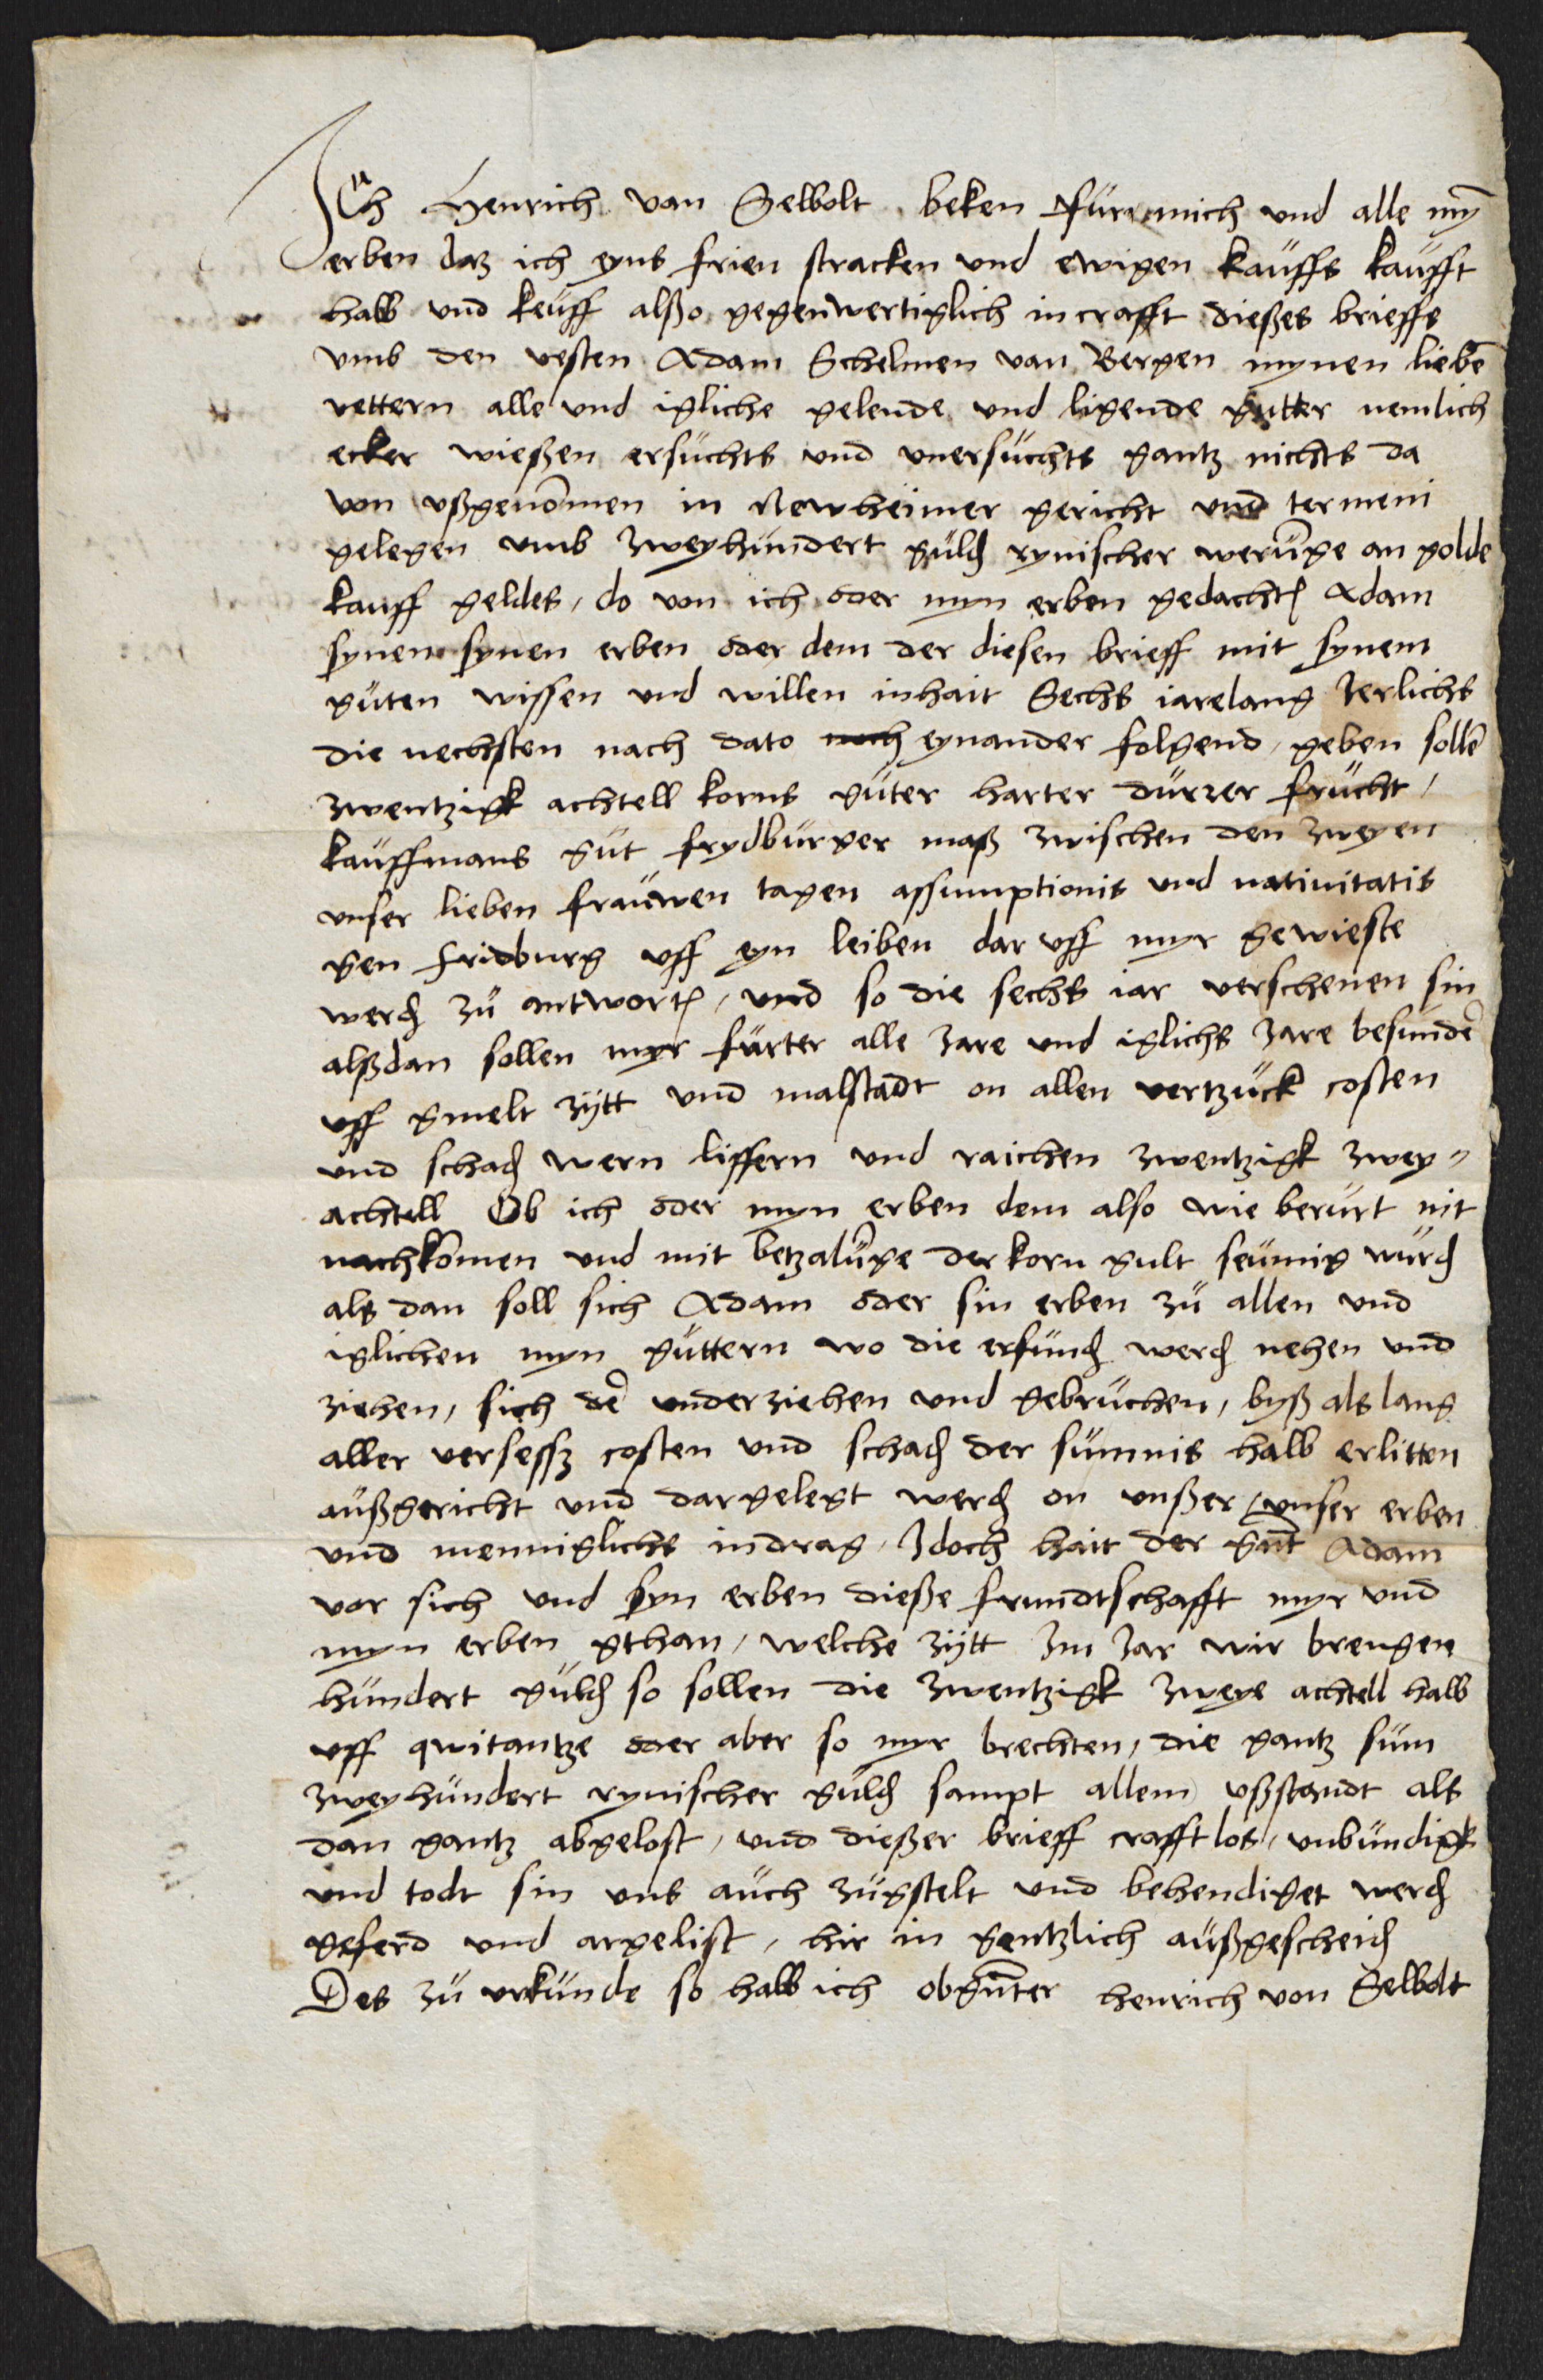 Ich Henrich van Selbolt beken fur mich und alle myn̄
erben daz ich eyns frien stracken und ewigen kauffs kaufft
hab und keuff alßo gegenwertiglich in crafft dießes brieffs
umb den vesten Adam Schelmen van Bergen mynen liebē
vettern alle und igliche gelende und ligende gutter nemlich
ecker wießen ersuchts und unersuchts gantz nichts da
von ußgenom̄en in Newheimer gericht und termeni
gelegen umb zweyhundert guld rynischer werūge an golde
kauff geldes, do von ich oder myn erben gedacht Adam
synen synen erben oder dem der diesen brieff mit synem
guten wissen und willen inhait Sechs iarelang Jerlichs
die nechsten nach dato noch eynander folgend, geben sollē
zwentzigk achtell korns guter harter durrer frucht,
kauffmans gut frydburger maß zwischen den zweyen
unser lieben frauwen tagen assumptionis und nativitatis
gen fridburg uff eyn leiben dar uff myr gewieste
werd zu antwort, und so die sechs iar verschenen sin
alßdan sollen myr furter alle Jare und iglichs Jare besundē
uff gmelt zytt und malstadt on allen vertzuck costen
und schad wern liffern und raichen zwentzigk zwey=
achtell Ob ich oder myn erben dem also wie berurt nit
nachkōmen und mit betzalūge der korn gult seumig wurd
als dan soll sich Adam oder sin erben zu allen und
iglichen myn guttern wo die erfund werd nehen und
ziehen, sich dē underziehen und gebruchen, byß als lang
aller versessz costen und schad der sumnis halb erlitten
außgericht und dargelegt werd on unßer, unser erben
und menniglichs indrag, Jdoch hait der gnt̄ Adam
vor sich und syn erben dieße frundtschafft myr und
myn erben gthan, welche zytt Jm Jar wir brengen
hundert guld so sollen die zwentzigk zweye achtell halb
uff qwitantze oder aber so myr brechten, die gantz sum
zweyhundert rynischer guld sampt allem ußstandt als
dan gantz abgelost, und dießer brieff crafftlos, unbundigk
und todt sin uns auch zugstelt und behendiget werd
geferd und argelist, hir in gentzlich außgescheid
Des zu urkunde so hab ich obgn̄ter henrich von Selbolt